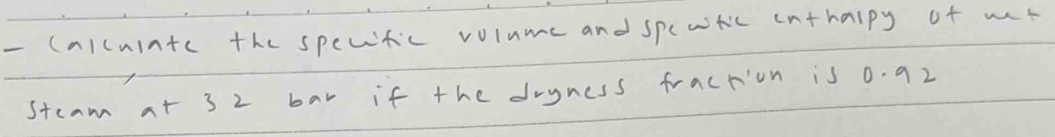 - Calculate the specific volume and specific enthalpy of wet
steam at 32 bar if the dryness fraction is 0.92